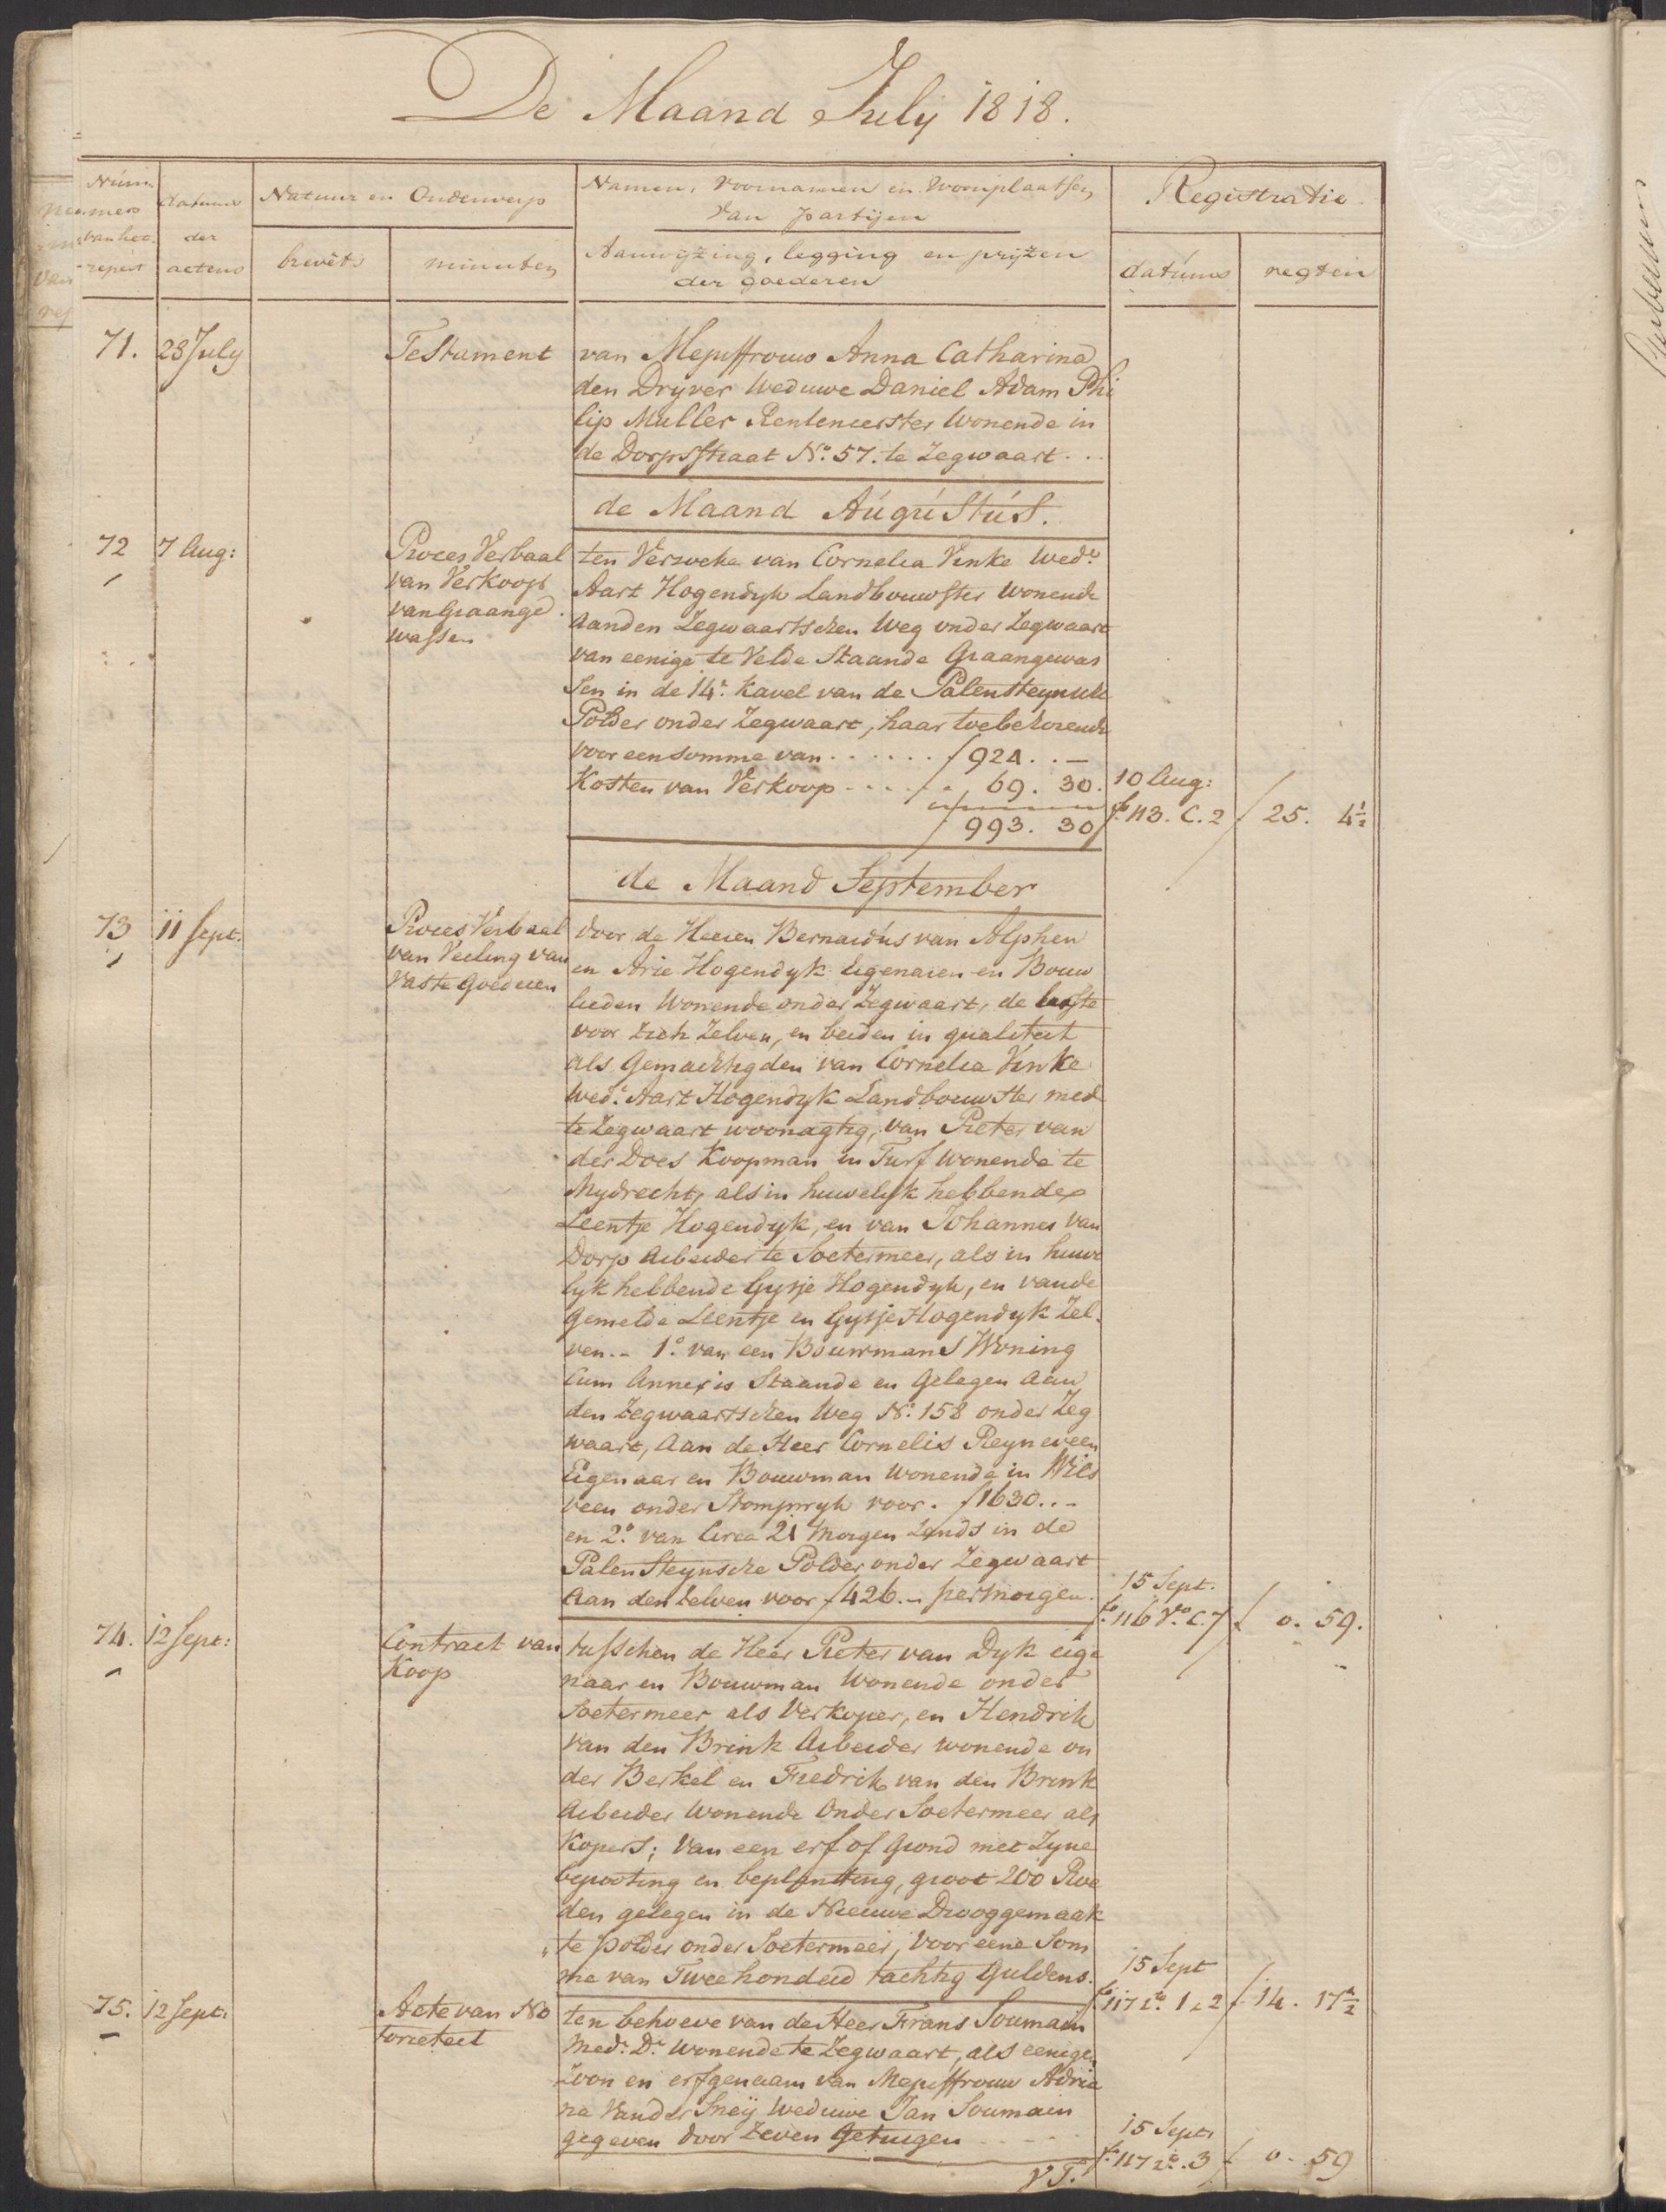 De Maand July 1818.
Num-
mers
van het
repert
datums
der
actens
Natuur en Onderwerp
brevèts
minuten
Namen, Voornamen en Woonplaatsen
Van partijen
Aanwijzing, legging en prijzen
der goederen
Registratie
datúms
regten
71. 28 July
Testament
van Mejuffrouw Anna Catharina
den Dryver Weduwe Daniel Adam Phi
lip Muller Renteneerster Wonende in
de Dorpsstraat No. 57. te Zegwaart...
de Maand Aúgústús.
72 7 Aug:
Proces Verbaal
van Verkoop
van Graange
wassen
ten Verzoeke van Cornelia Vinke Wede.
Aart Hogendyk Landbouwster Wonende
aanden Zegwaartschen Weg onder Zegwaart
van eenige te Velde Staande Graangewas
sen in de 14e. Kavel van de Palensteynsche
Polder onder Zegwaart, haar toebehorende
voor een somme van...... f 924..—
Kosten van Verkoop ..... „ 69. 30.
f 993. 30
10 Aug:
fo. 113. C. 2 f 25. 4½
de Maand September
73 11 Sept.
Proces Verbaal
van Veiling van
Vaste Goederen
door de Heeren Bernardús van Alphen
en Arie Hogendyk Eigenaren en Bouw
lieden Wonende onder Zegwaart, de laaste
voor zich zelven, en beiden in qualiteit
als Gemachtigden van Cornelia Vinke
Wede. Aart Hogendyk Landbouwster mede
te Zegwaart woonagtig, van Pieter van
der Does Koopman in Turf Wonende te
Mydrecht, als in huwelyk hebbende
Leentje Hogendyk, en van Johannes van
Dorp Arbeider te Soetermeer, als in huwe
lyk hebbende Gysje Hogendyk, en vande
gemelde Leentje en Gysje Hogendyk Zel-
ven.- 1o. van een Bouwmans Woning
Cum Annexis Staande en Gelegen aan
den Zegwaartschen Weg No. 158 onder Zeg
waart, Aan de Heer Cornelis Reyneveen
Eigenaar en Bouwman Wonende in Wils
veen onder Stompwyk voor. f 1630..-
en 2o. van Circa 21 Morgen Lands in de
Palen Steynsche Polder onder Zegwaart
Aan den Zelven voor f 426.- per morgen.
15 Sept.
fo. 116 Vo. C. 7 f 0. 59.
74. 12 Sept:
Contract van
Koop
tusschen de Heer Pieter van Dyk eige
naar en Bouwman Wonende onder
Soetermeer als Verkoper, en Hendrik
Van den Brink Arbeider wonende on
der Berkel en Fredrik van den Brink
Arbeider Wonende Onder Soetermeer als
Kopers; Van een erf of Grond met Zyne
bepooting en beplanting, groot 200 Roe
den gelegen in de Nieuwe Drooggemaak
te polder onder Soetermeer, Voor eene Som
me van Twee honderd tachtig Guldens.
15 Sept
fo. 117 ro. 1, 2 f 14. 17½
75. 12 Sept:
Acte van No
torieteit
ten behoeve van de Heer Frans Soumain
Med: Dr. Wonende te Zegwaart, als eenige
Zoon en erfgenaam van Mejuffrouw Adria
na Vander Sneij Weduwe Jan Soumain
gegeven door Zeven Getuigen
15 Sept:
fo. 117 ro. 3 f 0. 59
VT.